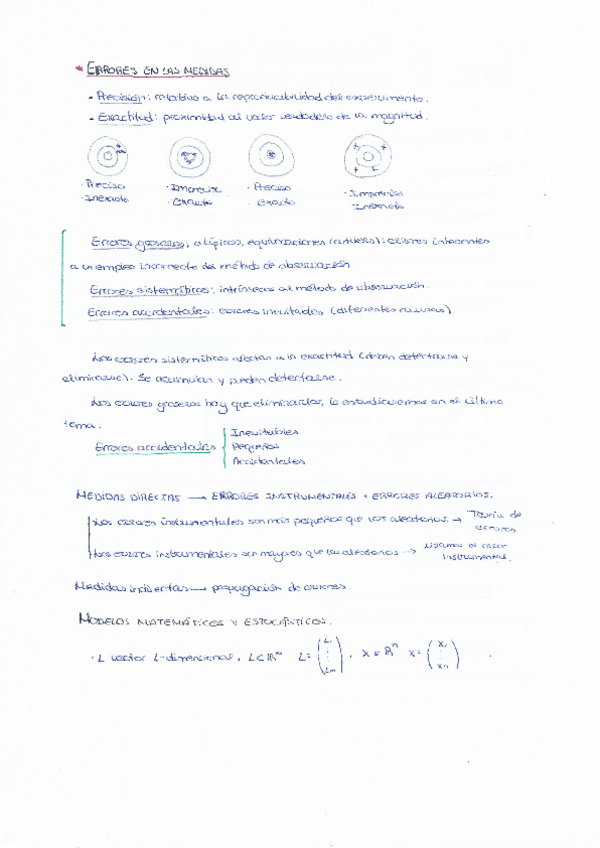 * ERRORES EN LAS MEDIDAS
- Precisión: relativo a la reproducibilidad del experimento.
- Exactitud: proximidad al valor verdadero de la magnitud.
· Preciso · Impreciso · Preciso · Impreciso
· Inexacto · Exacto · Exacto · Inexacto
Errores groseros, atípicos, equivocaciones (outliers): errores inherentes
a un empleo incorrecto del método de observación
Errores sistemáticos: intrínsecos al método de observación.
Errores accidentales: errores inevitables (diferentes causas).
Los errores sistemáticos afectan a la exactitud (deben detectarse y
eliminarse). Se acumulan y pueden detectarse.
Los errores groseros hay que eliminarlos, lo estudiaremos en el último
tema.
Errores accidentales
Inevitables
Pequeños
Accidentales
MEDIDAS DIRECTAS → ERRORES INSTRUMENTALES + ERRORES ALEATORIOS.
Los errores instrumentales son más pequeños que los aleatorios. → Teoría de errores
Los errores instrumentales son mayores que los aleatorios → Usamos el error instrumental.
Medidas indirectas → propagación de errores.
MODELOS MATEMÁTICOS Y ESTOCÁSTICOS.
· L vector L-dimensional, L∈ℝᵐ L= (L₁ ⋮ Lₘ), X∈ℝⁿ X= (X₁ ⋮ Xₙ)